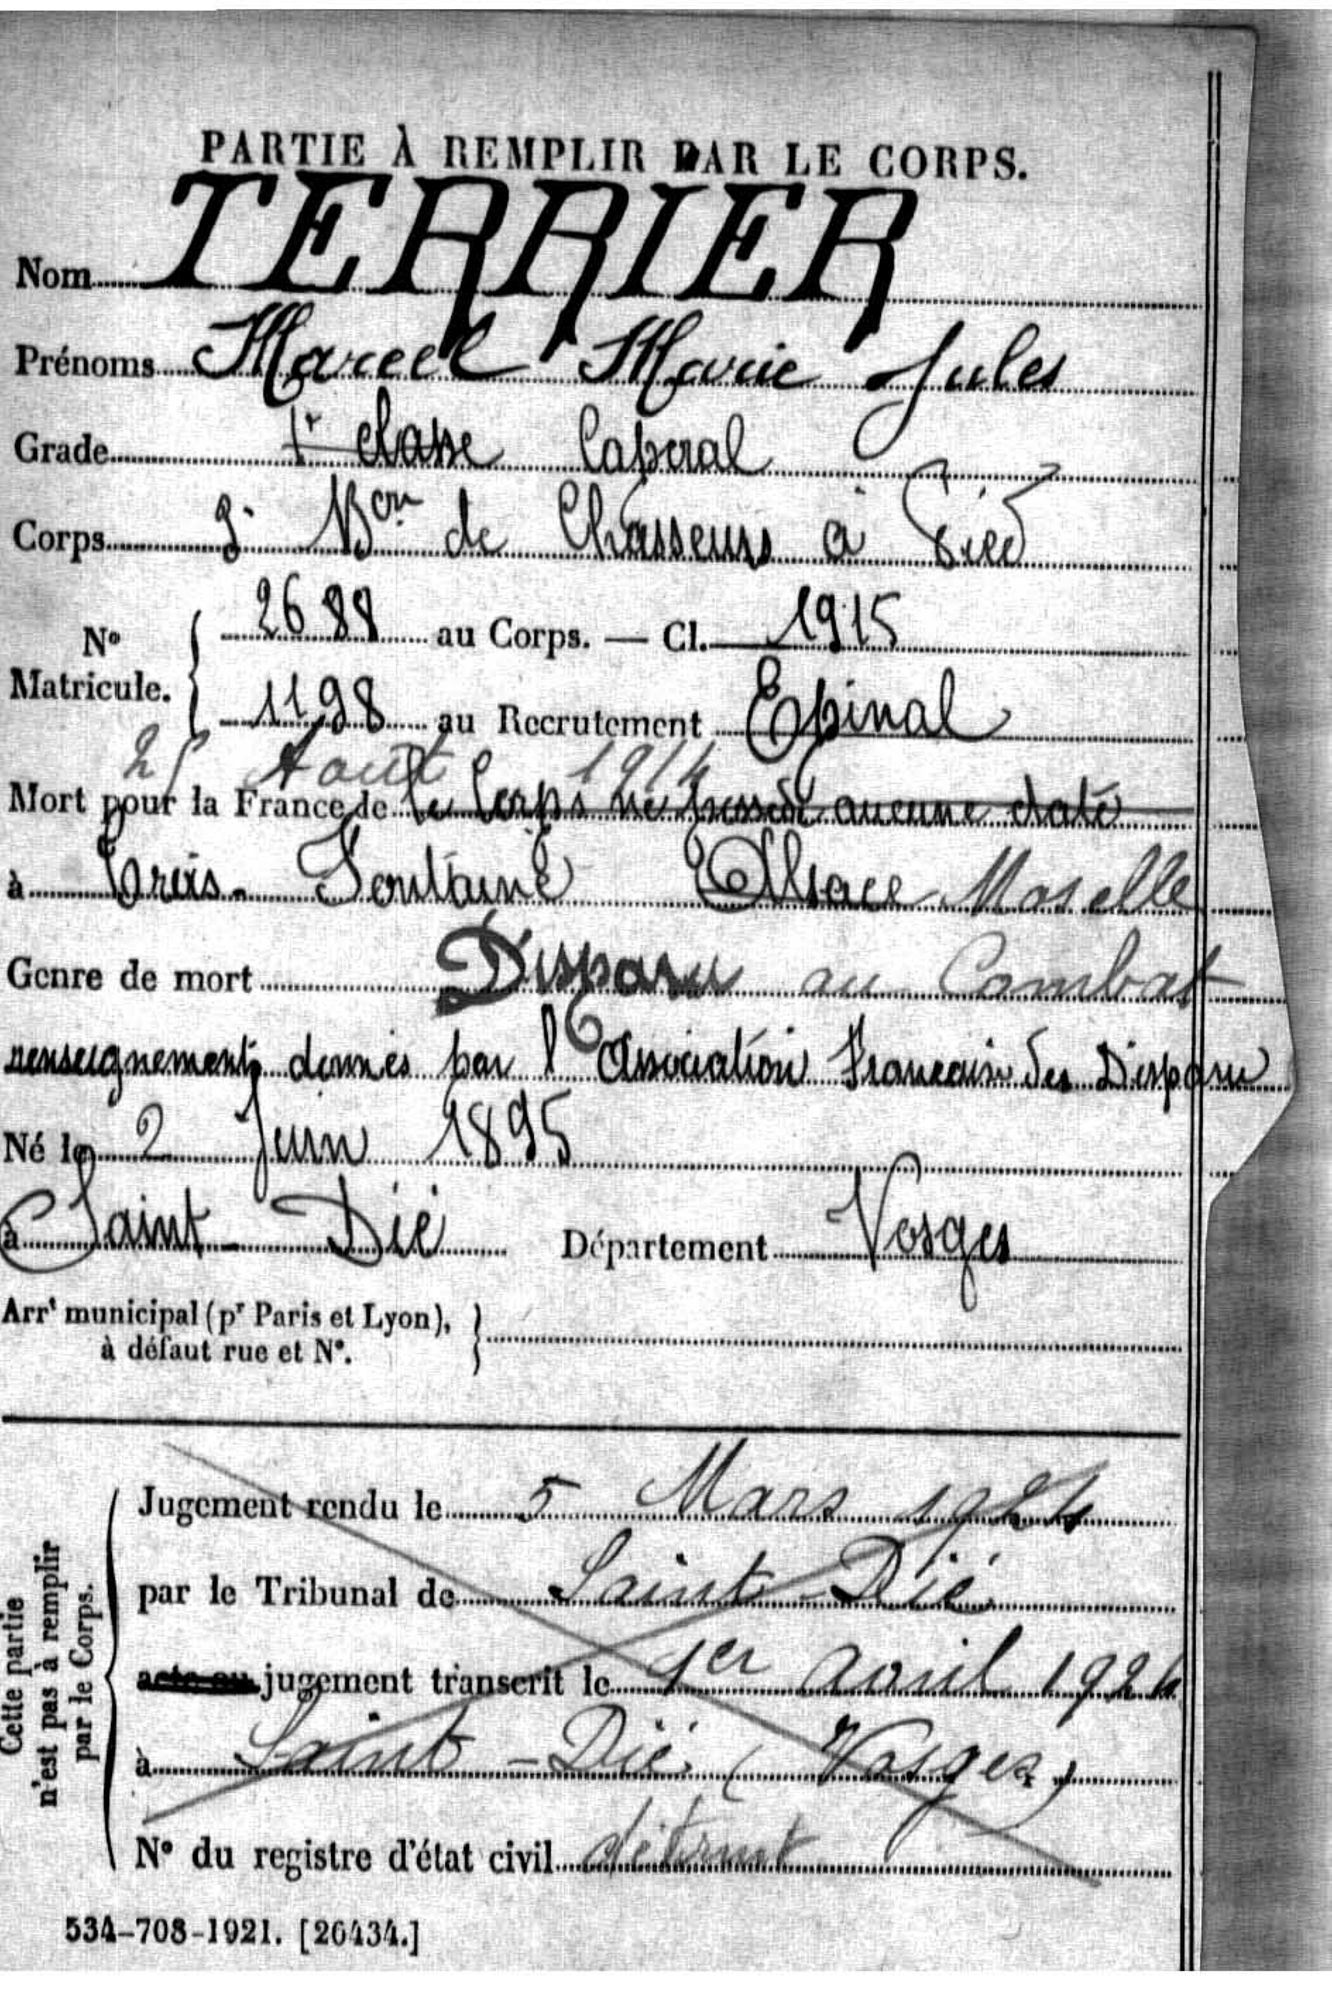 PARTIE À REMPLIR PAR LE CORPS.
Nom TERRIER
Prénoms Marcel Marie Jules
Grade 1r classe Caporal
Corps 3e Bon de Chasseurs à Pied
No Matricule. 2688 au Corps. — Cl. 1915
1198 au Recrutement Epinal
25 Août 1914
Mort pour la France le le Corps ne possède aucune date
à Trois-Fontaine Alsace Moselle
Genre de mort Disparu au Combat
renseignements donnés par l'Association Francaise des Disparu
Né le 2 Juin 1895
à Saint-Dié Département Vosges
Arrt municipal (pr Paris et Lyon),
à défaut rue et No.
Cette partie
n'est pas à remplir
par le Corps.
Jugement rendu le 5 Mars 1924
par le Tribunal de Saint-Dié
acte ou jugement transcrit le 1er Avril 1924
à Saint-Dié (Vosges)
No du registre d'état civil détruit
534-708-1921. [26434.]